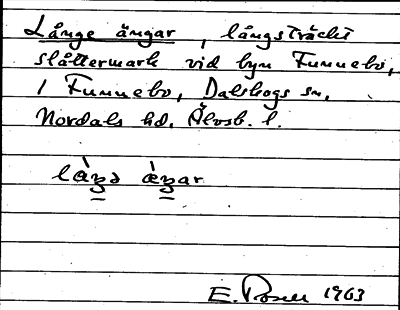 Långe ängar, långsträckt
slåttermark vid byn Funnebo,
1 Funnebo, Dalskogs sn,
Nordals hd. Älvsb. l.
là̱ŋə æ̀ŋar
E. 1963